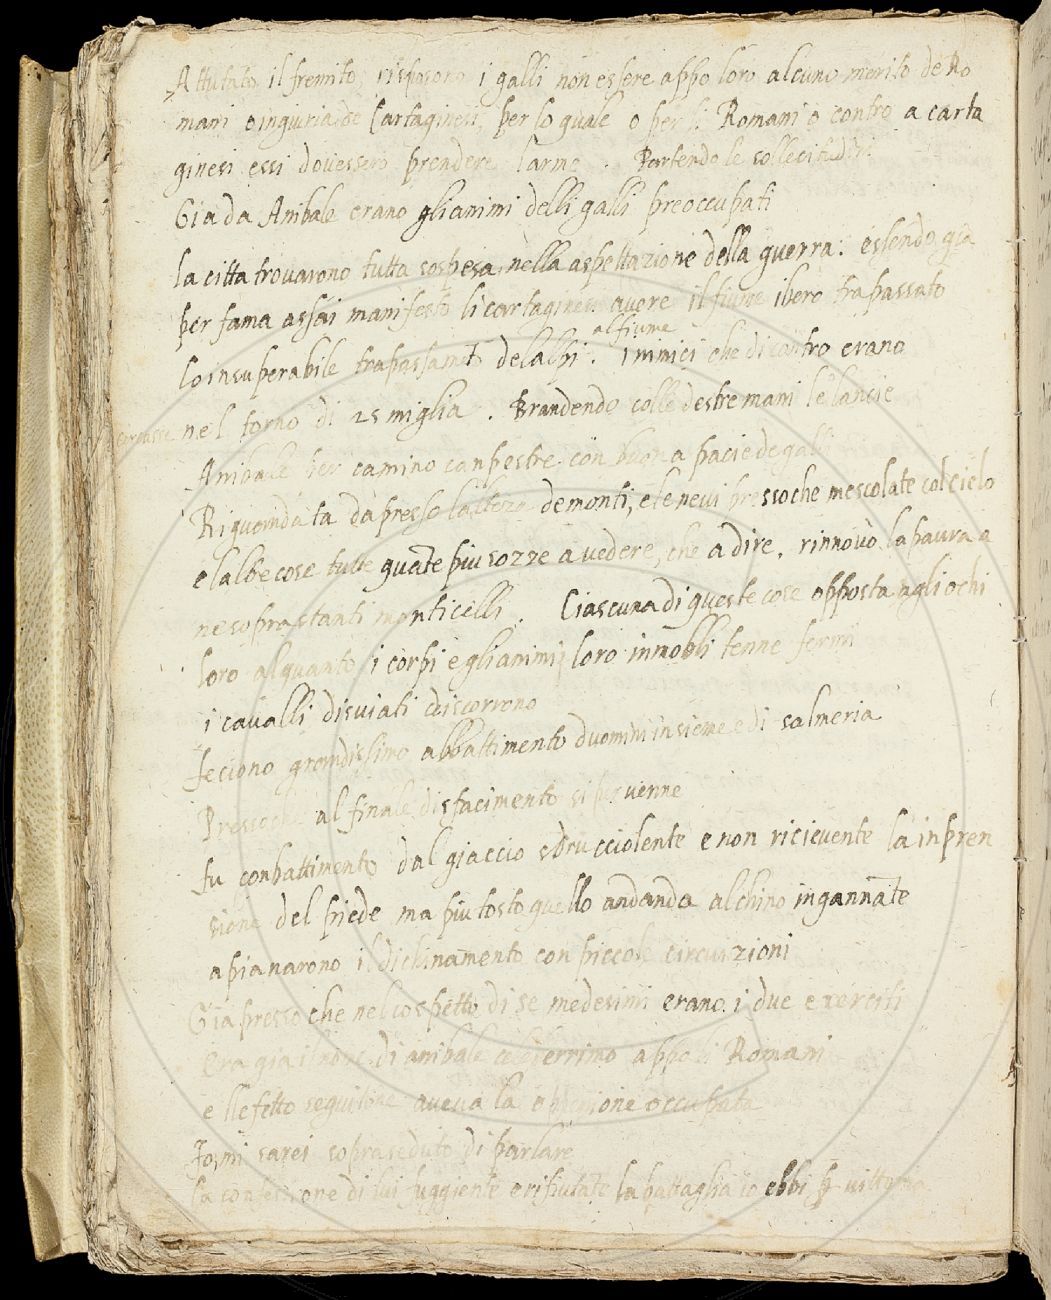 Attutato il fremito, risposono i galli non essere appo loro alcuno merito de Ro
mani o ingiuria de Cartaginesi, per lo quale o per li Romani o contro a carta
ginesi essi dovessero prendere larme. Partendo le sollecitudini
Gia da Anibale erano glianimi delli galli preoccupati
la citta trovarono tutta sospesa nella aspettazione della guerra. essendo gia
per fama assai manifesto li cartaginesi avere il fiume ibero trapassato
lo insuperabile trapassamēto delalpi. al fiume
i nimici che di contro erano
nel torno di 25 miglia. Brandendo colle destre mani le lancie
Anibale per camino canpestre con buona pacie de galli
Riguardata dapresso lalteza de monti, e le nevi pressoche mescolate col cielo
e laltre cose tutte quāte piu sozze a vedere, che a dire, rinnovò la paura a
ne soprastanti monticelli. Ciascuna di queste cose opposta agli ochi
loro alquanto i corpi e glianimi loro inmobli tenne fermi
i cavalli disviati discorrono
feciono grandissimo abbattimento duomini insieme e di salmeria
Pressoche al finale disfacimento si pervenne
fu conbattimento dal giaccio sdrucciolente e non ricievente la inpren
sione del piede ma piu tosto quello andando al chino ingannāte
apianarono il dichinamento con piccole circuizioni
Gia presso che nel cospetto di se medesimi erano i due exerciti
era gia il nome di anibale celeberrimo appo li Romani
aveva la openione occupata
Io mi sarei sopraseduto di parlare
la confessione di lui fuggiente e rifiutāte la battaglia io ebbi p vittoria